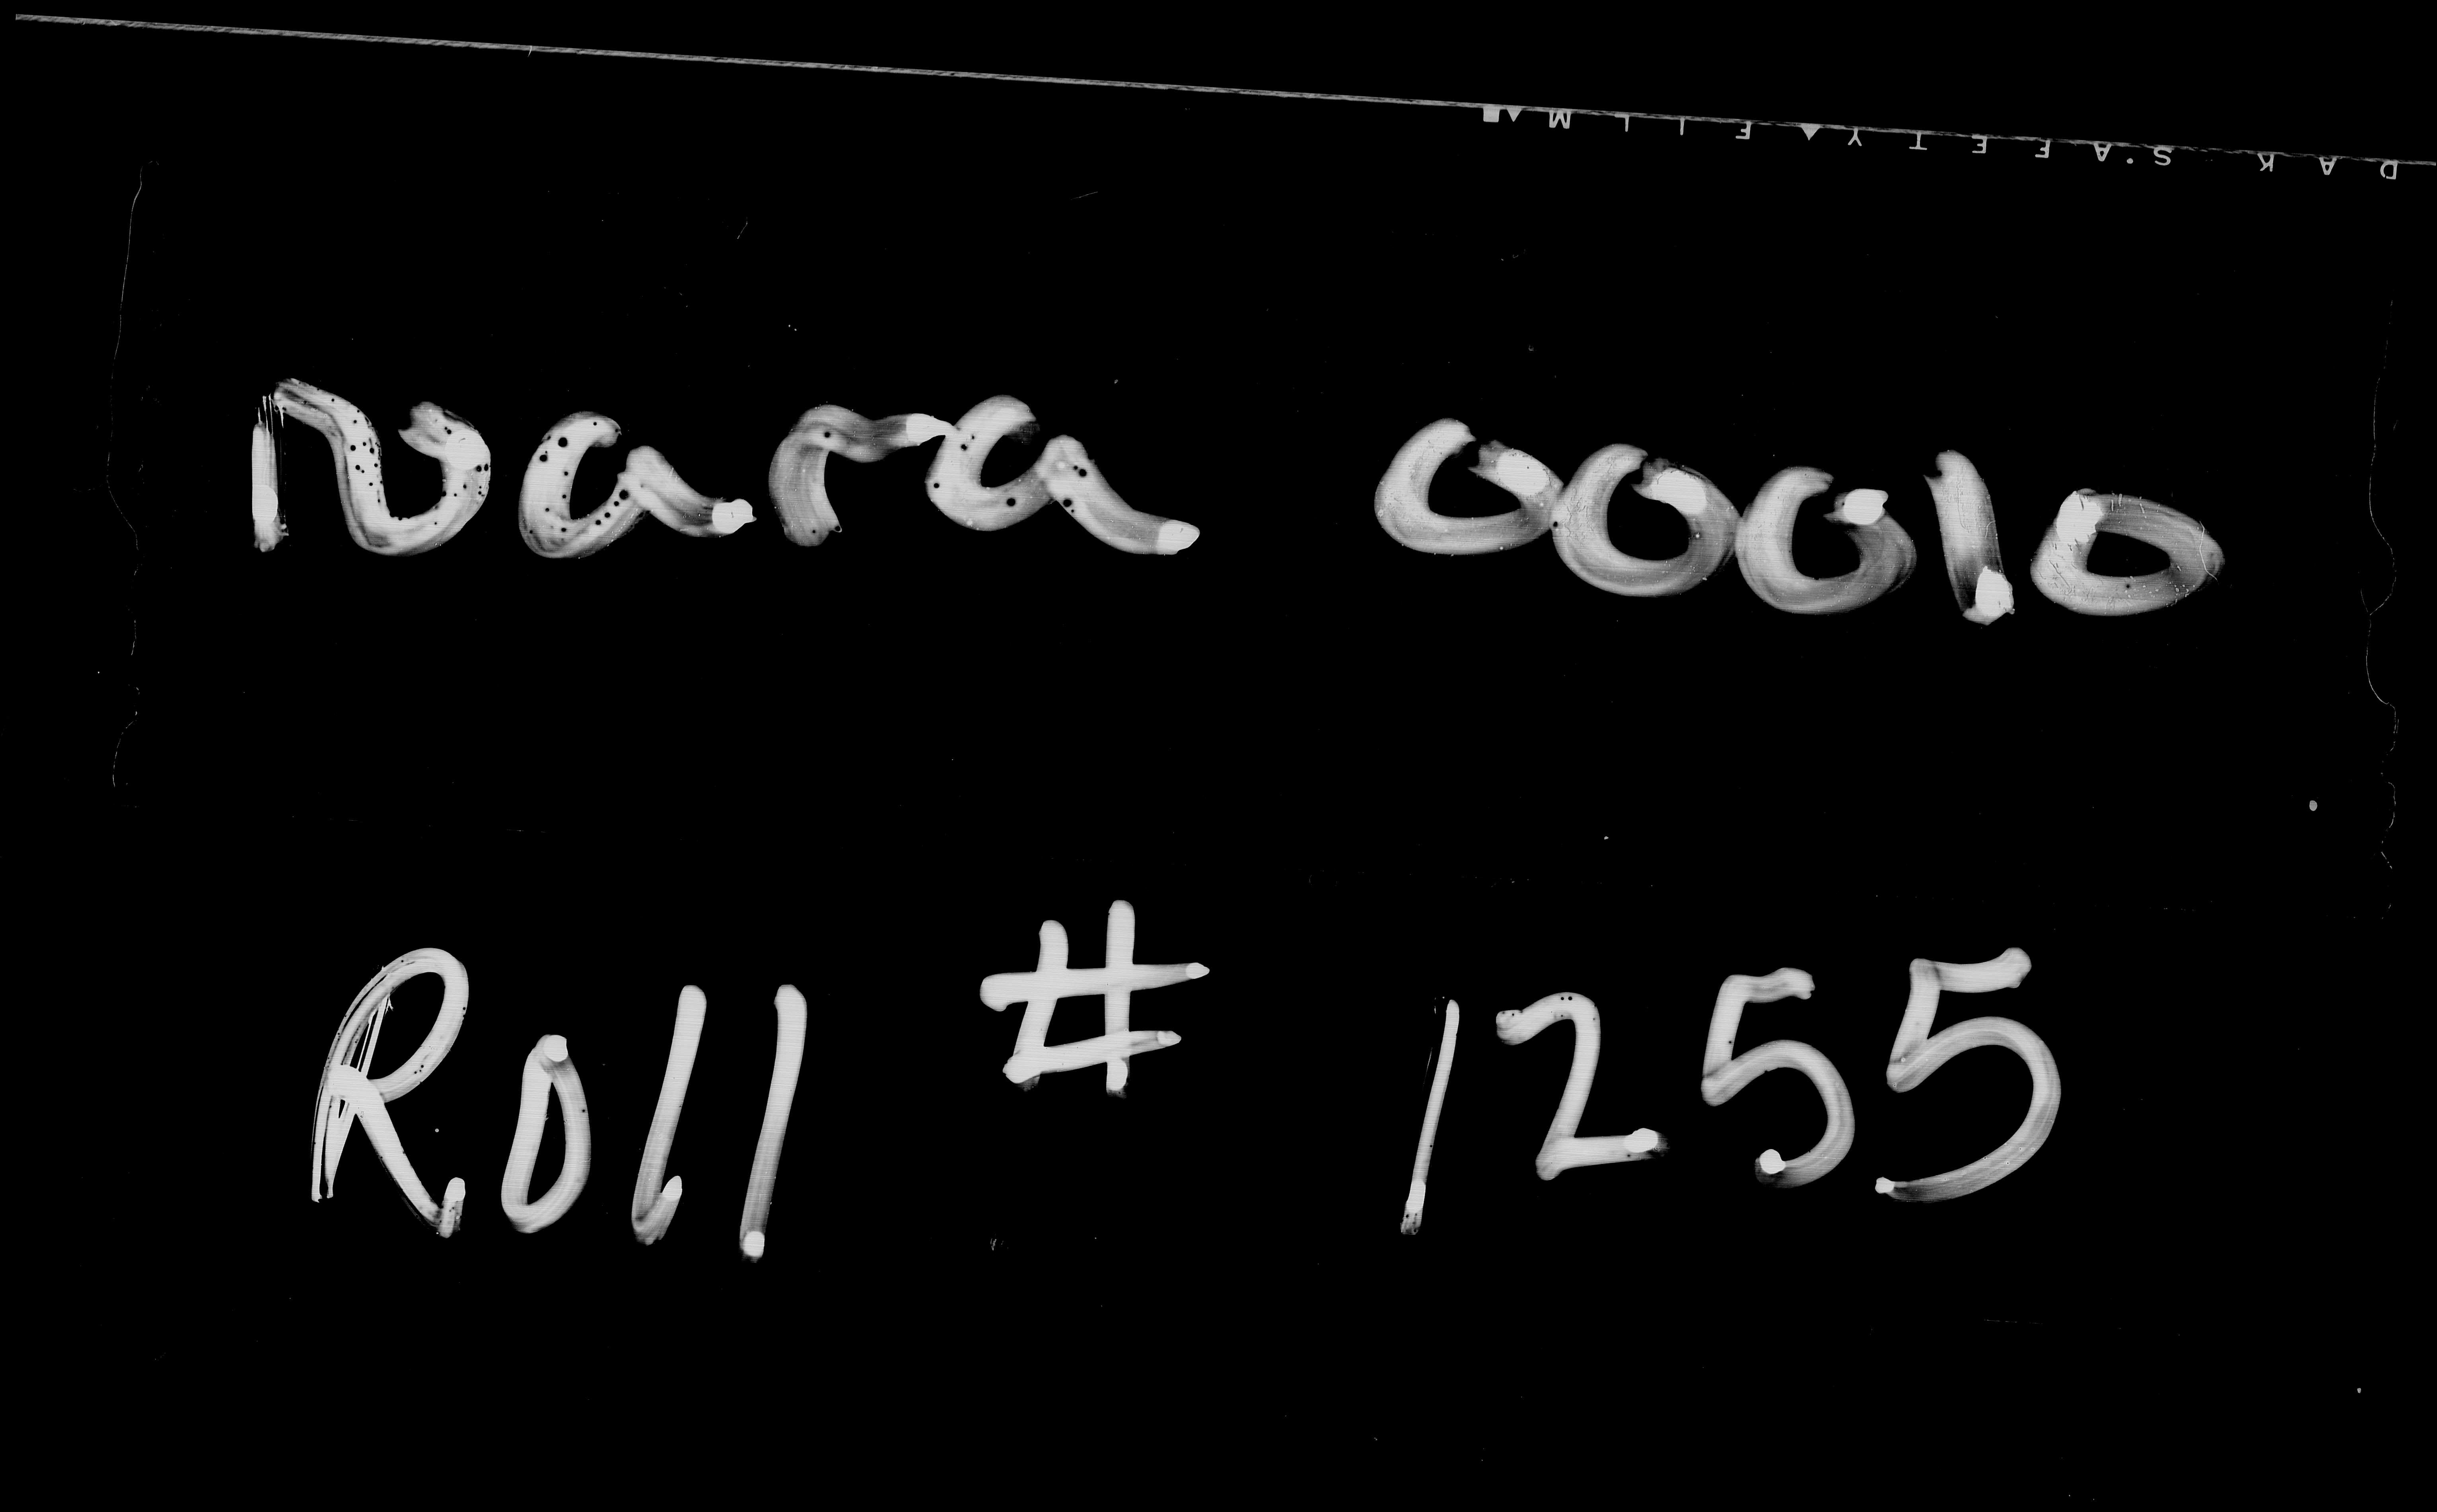 DAK SAFETY FILM
Nara 00010
Roll # 1255